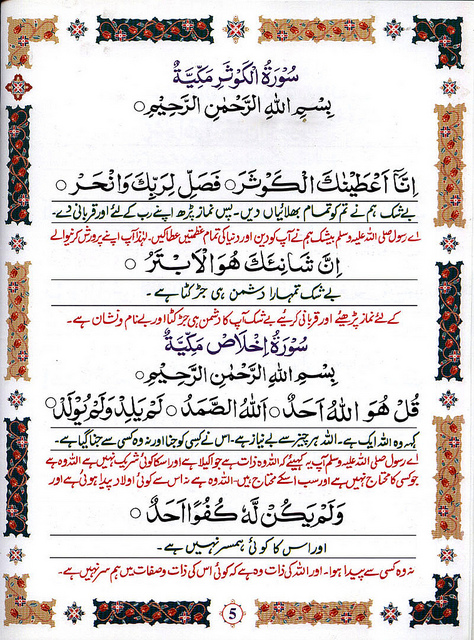 سُوْرَةُ الْكَوْثَرِ مَكِّيَّةٌ
بِسْمِ اللهِ الرَّحْمٰنِ الرَّحِيْمِ ○
اِنَّاۤ اَعْطَيْنٰكَ الْكَوْثَرَ ○ فَصَلِّ لِرَبِّكَ وَانْحَرْ ○
بے شک ہم نے تم کو تمام بھلائیاں دیں۔ پس نماز پڑھ اپنے رب کے لئے اور قربانی دے۔
اے رسول صلی اللہ علیہ وسلم بیشک ہم نے آپ کو دین اور دنیا کی تمام عظمتیں عطا کیں۔ لہٰذا آپ اپنے پرورش کرنیوالے
اِنَّ شَانِئَكَ هُوَ الْاَبْتَرُ ○
بے شک تمہارا دشمن ہی جڑ کٹا ہے۔
کے لئے نماز پڑھیئے اور قربانی کریئے بے شک آپ کا دشمن ہی جڑ کٹا اور بے نام و نشان ہے۔
سُوْرَةُ اِخْلَاصْ مَكِّيَّةٌ
بِسْمِ اللهِ الرَّحْمٰنِ الرَّحِيْمِ ○
قُلْ هُوَ اللهُ اَحَدٌ ○ اَللهُ الصَّمَدُ ○ لَمْ يَلِدْ وَلَمْ يُوْلَدْ ○
کہہ وہ اللہ ایک ہے۔ اللہ ہر چیز سے بے نیاز ہے۔ اس نے کسی کو جنا اور نہ وہ کسی سے جنا گیا ہے۔
اے رسول صلی اللہ علیہ وسلم آپ یہ کہیئے کہ اللہ وہ ذات ہے جو اکیلا ہے اور اسکا کوئی شریک نہیں ہے اللہ وہ ہے
جو کسی کا محتاج نہیں ہے اور سب اسکے محتاج ہیں۔ اللہ وہ ہے نہ اس سے کوئی اولاد پیدا ہوئی ہے اور
وَلَمْ يَكُنْ لَّهٗ كُفُوًا اَحَدٌ ○
اور اس کا کوئی ہمسر نہیں ہے۔
نہ وہ کسی سے پیدا ہوا۔ اور اللہ کی ذات وہ ہے کہ کوئی اس کی ذات و صفات میں ہم سر نہیں ہے۔
5